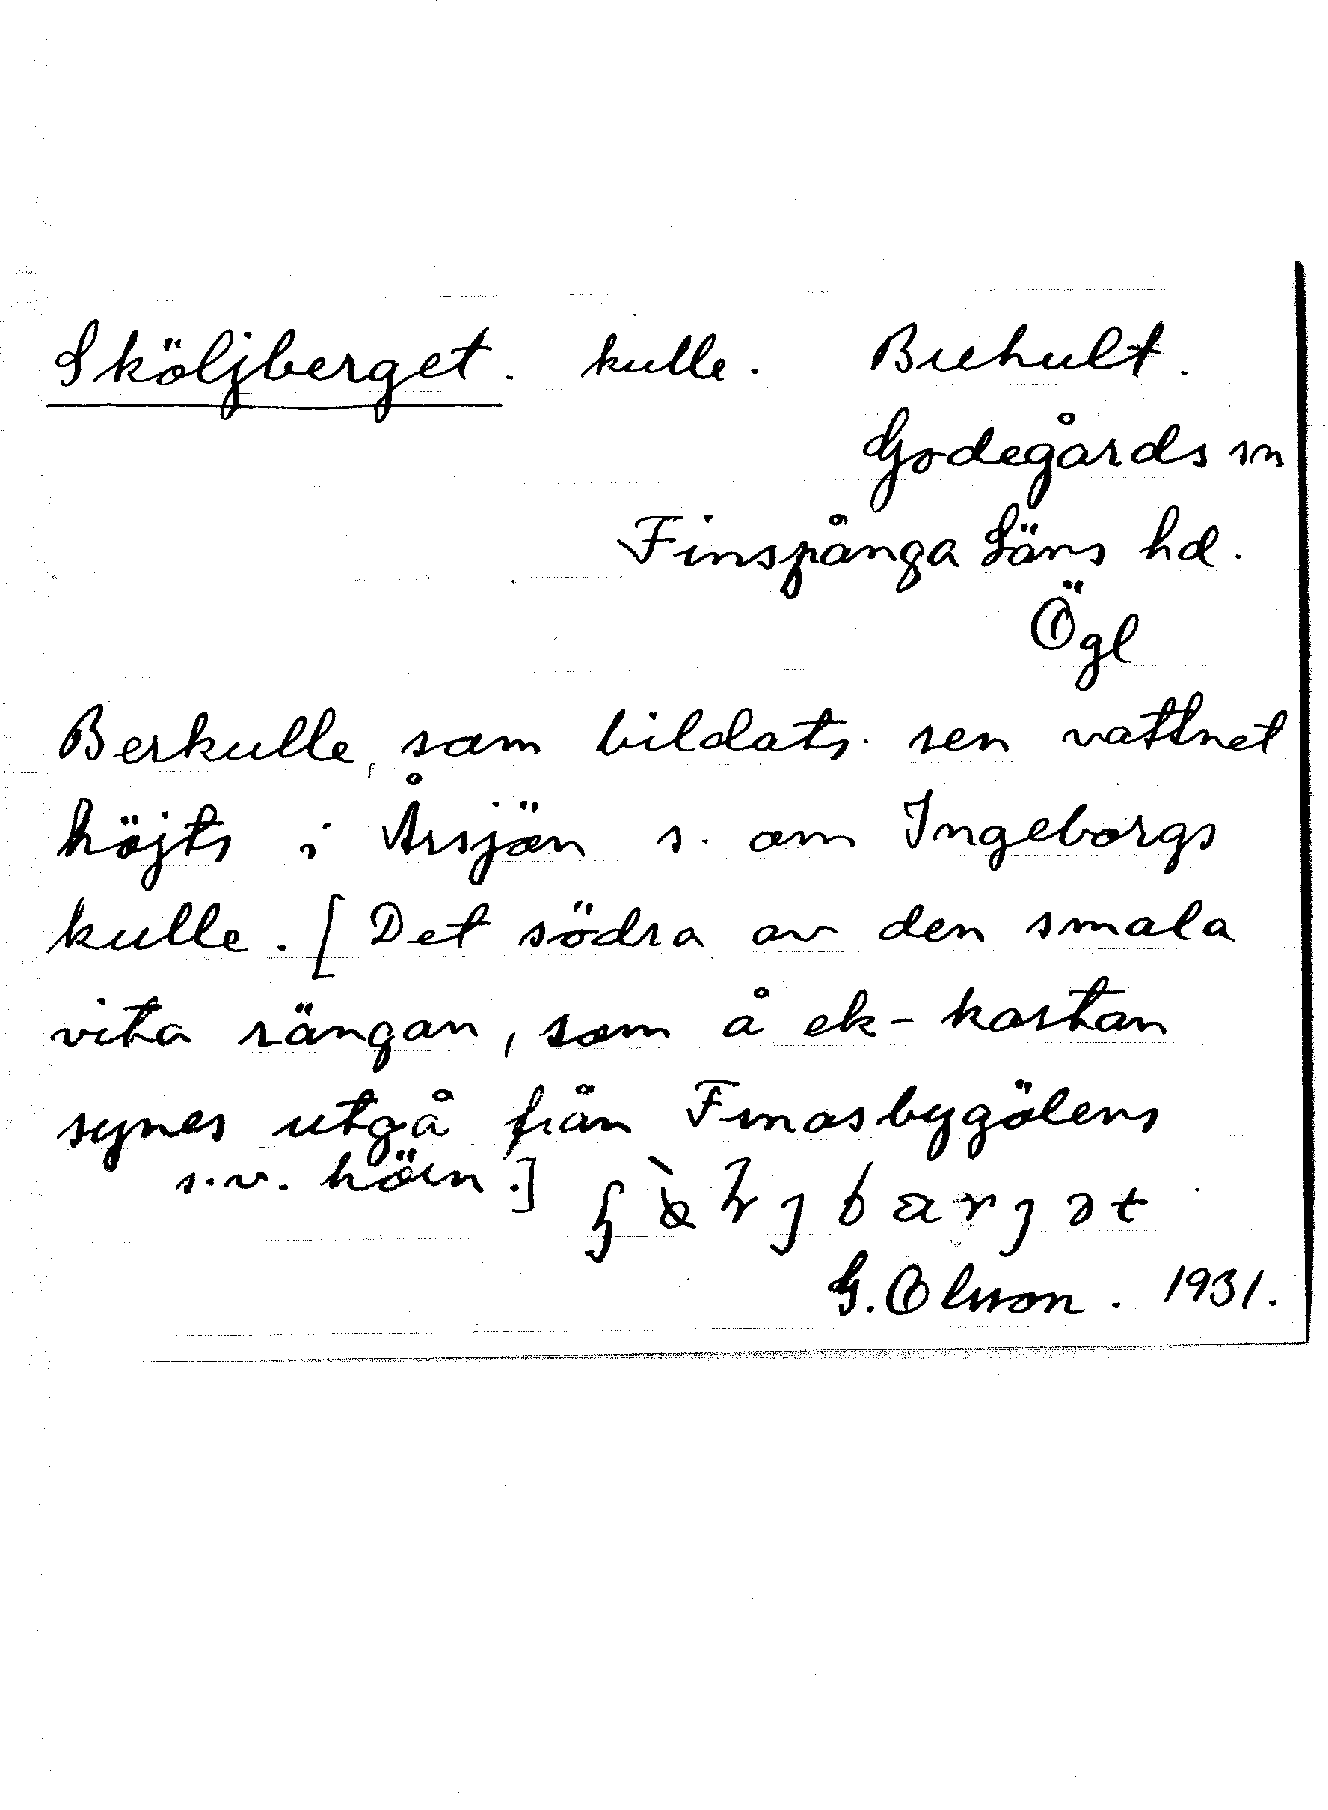 Sköljberget. kulle. Buhult.
Godegårds sn
Finspånga Läns hd.
Ögl
Berkulle, som bildats sen vattnet
höjts i Årsjön s. om Ingeborgs
kulle. [Det södra av den smala
vita rängan, som å ek-kartan
synes utgå från Finasbygölens
s.v. hörn.]
G. Olsson. 1931.